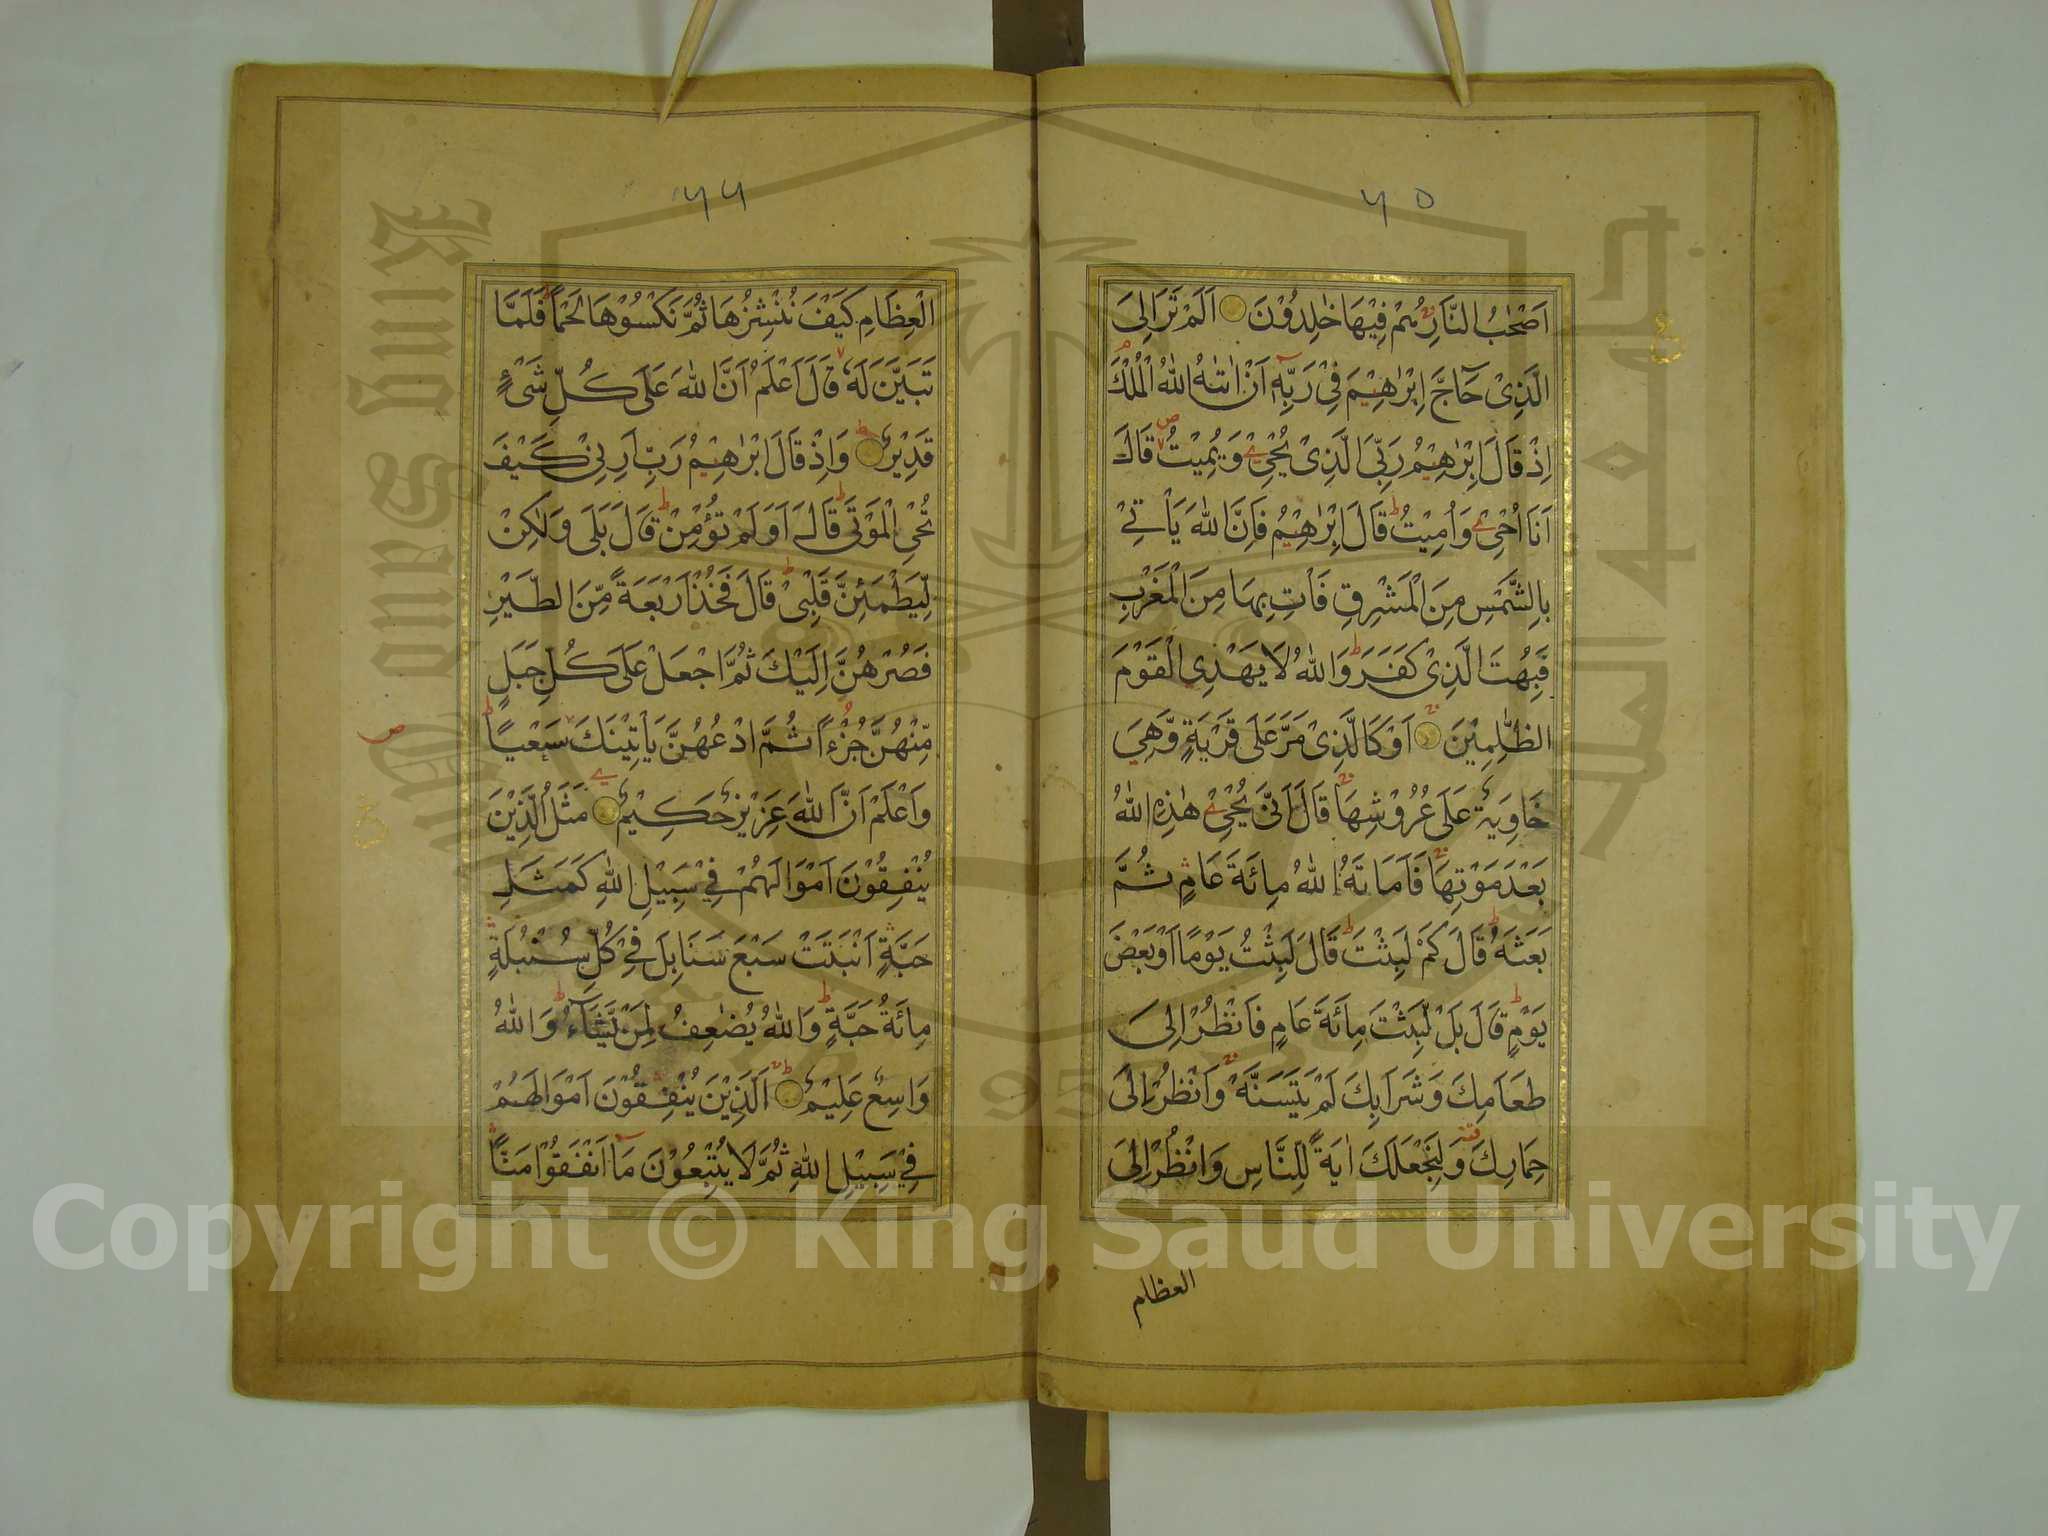 ٦٥
اَصْحٰبُ النَّارِ هُمْ فِيْهَا خٰلِدُوْنَ اَلَمْ تَرَ اِلَى
الَّذِيْ حَآجَّ اِبْرٰهِيْمَ فِيْ رَبِّهٖ اَنْ اٰتٰهُ اللّٰهُ الْمُلْكَ
اِذْ قَالَ اِبْرٰهِيْمُ رَبِّيَ الَّذِيْ يُحْيٖ وَيُمِيْتُ قَالَ
اَنَا اُحْيٖ وَاُمِيْتُ قَالَ اِبْرٰهِيْمُ فَاِنَّ اللّٰهَ يَاْتِيْ
بِالشَّمْسِ مِنَ الْمَشْرِقِ فَاْتِ بِهَا مِنَ الْمَغْرِبِ
فَبُهِتَ الَّذِيْ كَفَرَ وَاللّٰهُ لَا يَهْدِي الْقَوْمَ
الظّٰلِمِيْنَ اَوْ كَالَّذِيْ مَرَّ عَلٰى قَرْيَةٍ وَّهِيَ
خَاوِيَةٌ عَلٰى عُرُوْشِهَا قَالَ اَنّٰى يُحْيٖ هٰذِهِ اللّٰهُ
بَعْدَ مَوْتِهَا فَاَمَاتَهُ اللّٰهُ مِائَةَ عَامٍ ثُمَّ
بَعَثَهٗ قَالَ كَمْ لَبِثْتَ قَالَ لَبِثْتُ يَوْمًا اَوْ بَعْضَ
يَوْمٍ قَالَ بَلْ لَّبِثْتَ مِائَةَ عَامٍ فَانْظُرْ اِلٰى
طَعَامِكَ وَشَرَابِكَ لَمْ يَتَسَنَّهْ وَانْظُرْ اِلٰى
حِمَارِكَ وَلِنَجْعَلَكَ اٰيَةً لِّلنَّاسِ وَانْظُرْ اِلَى
العظام
٦٦
الْعِظَامِ كَيْفَ نُنْشِزُهَا ثُمَّ نَكْسُوْهَا لَحْمًا فَلَمَّا
تَبَيَّنَ لَهٗ قَالَ اَعْلَمُ اَنَّ اللّٰهَ عَلٰى كُلِّ شَيْءٍ
قَدِيْرٌ وَاِذْ قَالَ اِبْرٰهِيْمُ رَبِّ اَرِنِيْ كَيْفَ
تُحْيِ الْمَوْتٰى قَالَ اَوَلَمْ تُؤْمِنْ قَالَ بَلٰى وَلٰكِنْ
لِّيَطْمَئِنَّ قَلْبِيْ قَالَ فَخُذْ اَرْبَعَةً مِّنَ الطَّيْرِ
فَصُرْهُنَّ اِلَيْكَ ثُمَّ اجْعَلْ عَلٰى كُلِّ جَبَلٍ
مِّنْهُنَّ جُزْءًا ثُمَّ ادْعُهُنَّ يَاْتِيْنَكَ سَعْيًا
وَاعْلَمْ اَنَّ اللّٰهَ عَزِيْزٌ حَكِيْمٌ مَثَلُ الَّذِيْنَ
يُنْفِقُوْنَ اَمْوَالَهُمْ فِيْ سَبِيْلِ اللّٰهِ كَمَثَلِ
حَبَّةٍ اَنْبَتَتْ سَبْعَ سَنَابِلَ فِيْ كُلِّ سُنْبُلَةٍ
مِائَةُ حَبَّةٍ وَاللّٰهُ يُضٰعِفُ لِمَنْ يَّشَآءُ وَاللّٰهُ
وَاسِعٌ عَلِيْمٌ اَلَّذِيْنَ يُنْفِقُوْنَ اَمْوَالَهُمْ
فِيْ سَبِيْلِ اللّٰهِ ثُمَّ لَا يُتْبِعُوْنَ مَآ اَنْفَقُوْا مَنًّا
Copyright © King Saud University
King Saud University
1957